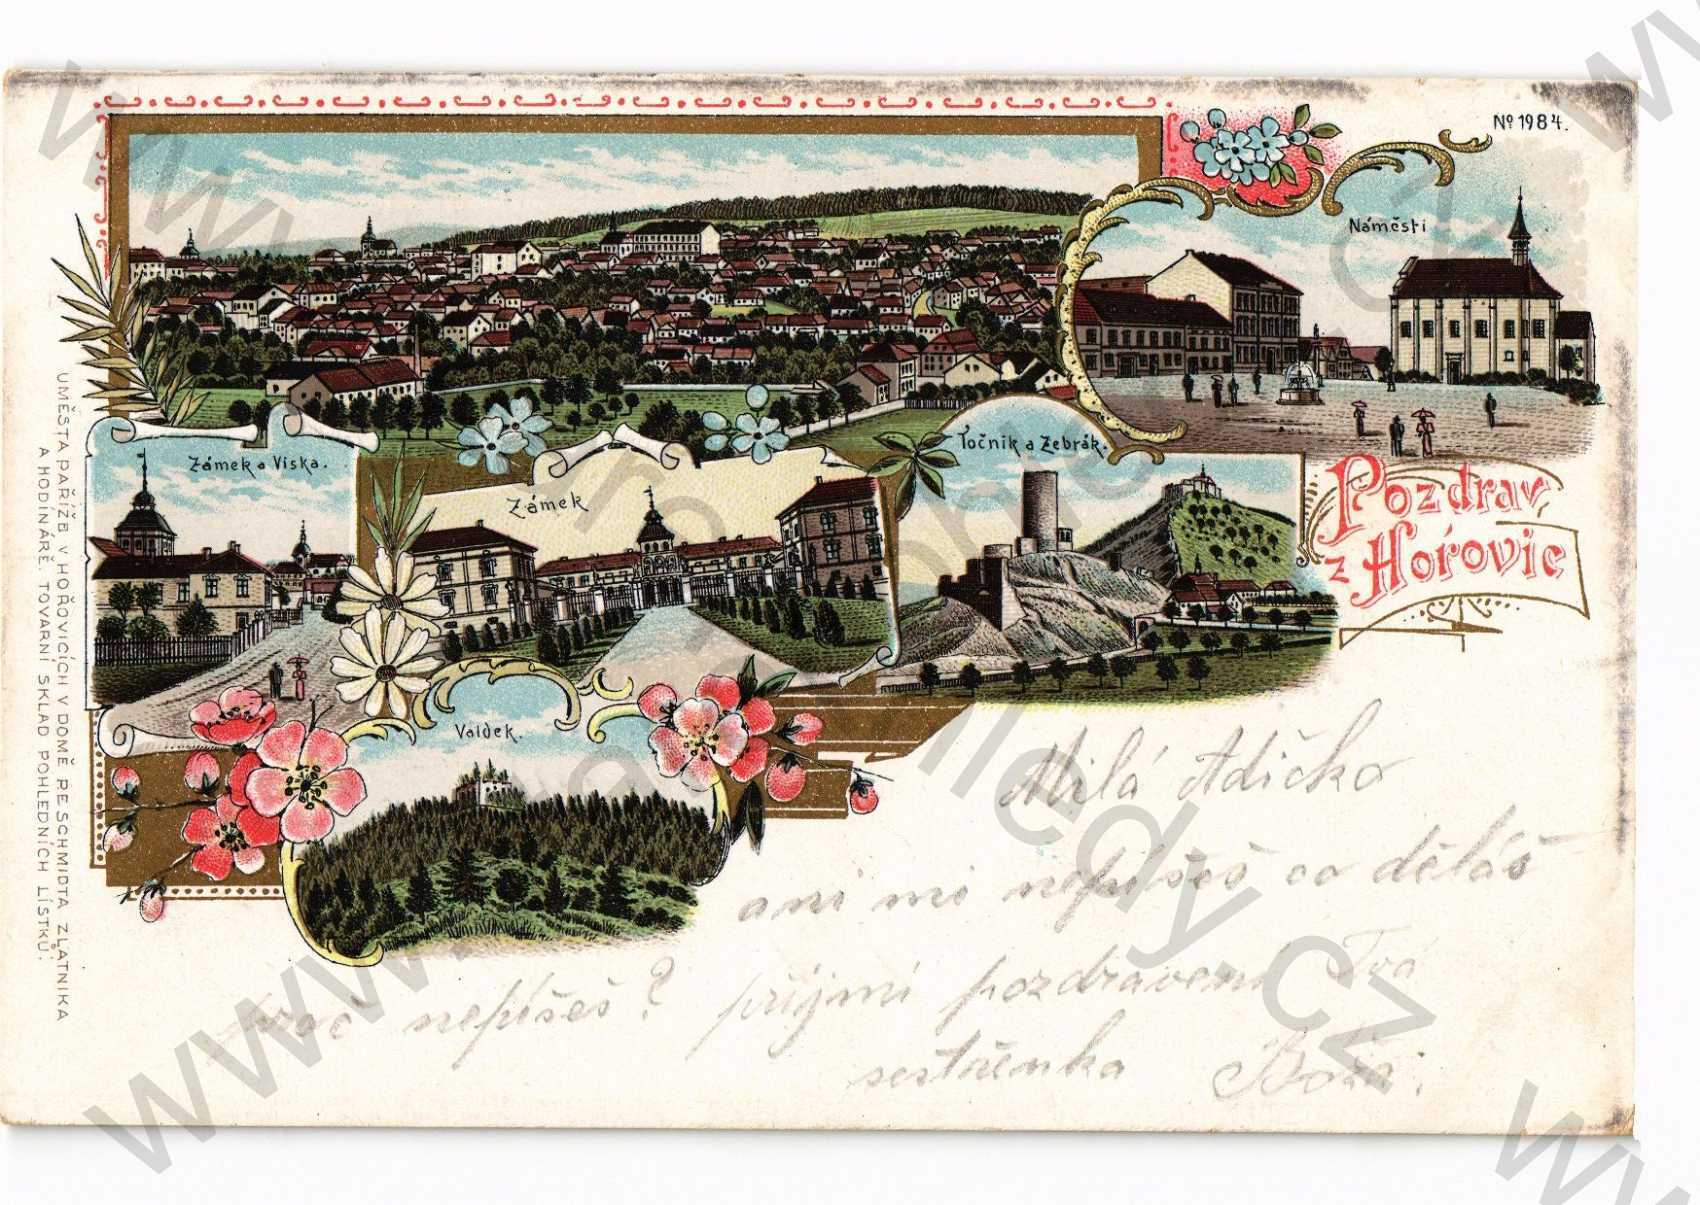 Nº 1984.
Náměsti
Zámek a Viska.
Zámek
Točnik a Žebrák.
Pozdrav
z Hořovic
Valdek.
U MĚSTA PAŘÍŽE V HOŘOVICÍCH V DOMĚ P. E. SCHMIDTA ZLATNIKA
A HODINÁŘE. TOVARNÍ SKLAD POHLEDNÍCH LÍSTKŮ.
Milá Adičko
ani mi nepíšeš co děláš
Proč nepíšeš? přijmi pozdravení Tvá
sestřenka Boža.